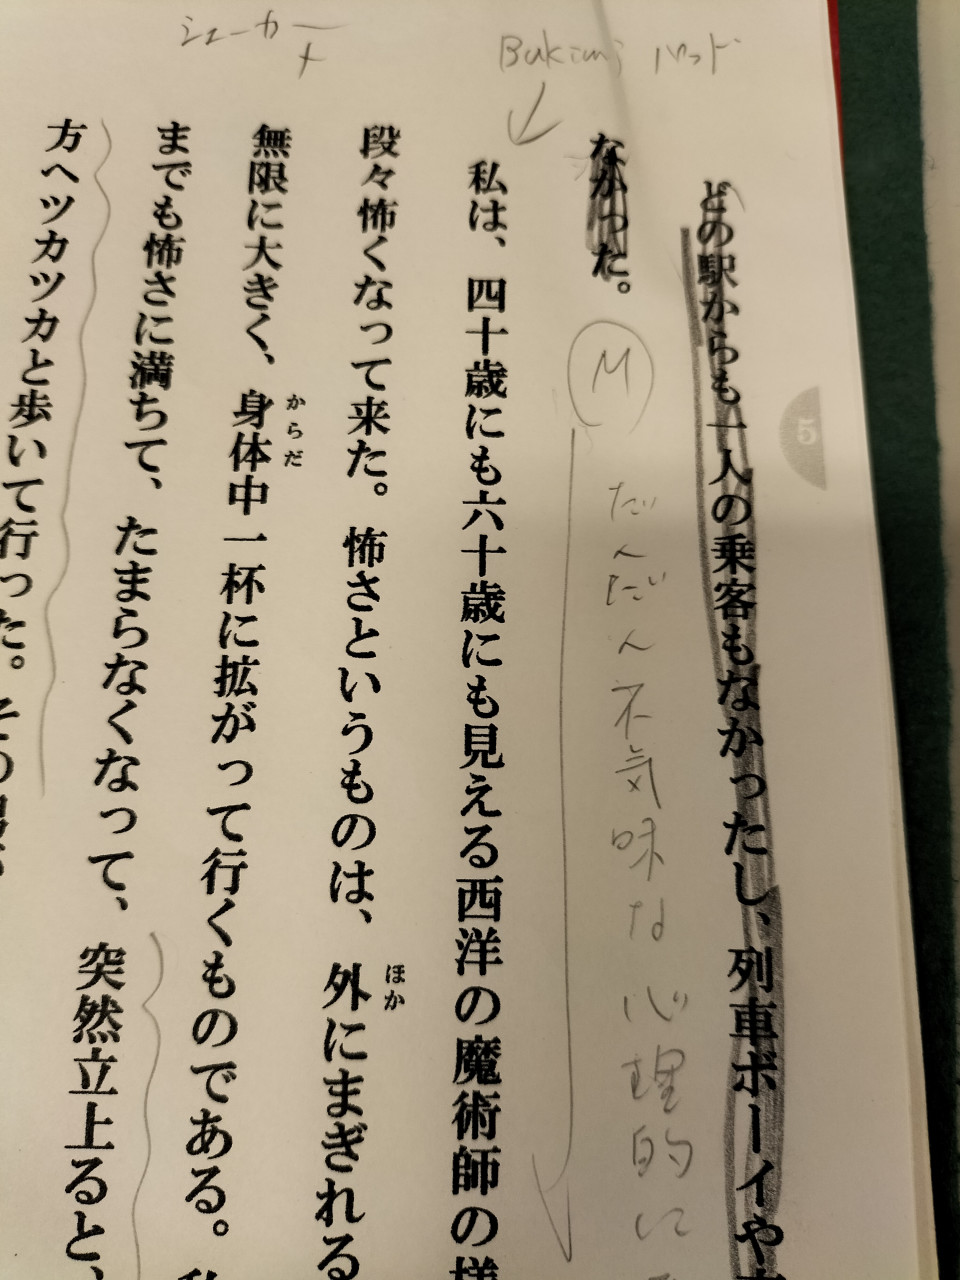 シェーカー
Bukimi パッド
5
どの駅からも一人の乗客もなかったし、列車ボーイや
なかった。
M
だんだん不気味な心理的に
私は、四十歳にも六十歳にも見える西洋の魔術師の様
段々怖くなって来た。怖さというものは、外にまぎれる
ほか
無限に大きく、身体中一杯に拡がって行くものである。私
からだ
までも怖さに満ちて、たまらなくなって、突然立上ると、
方へツカツカと歩いて行った。その